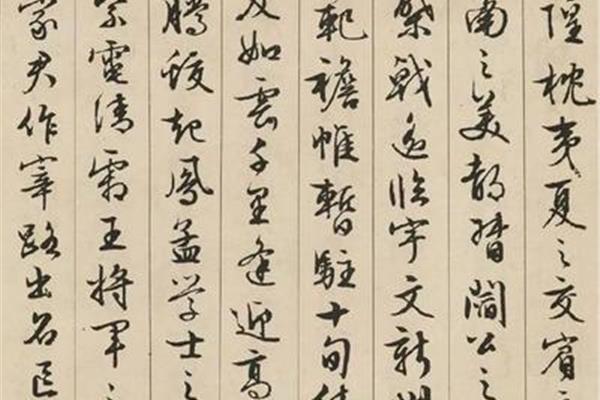 隍枕夷夏之交賓
南之美都督閻公之
棨戟遥臨宇文新
範襜帷暫駐十旬休
友如雲千里逢迎高
騰蛟起鳳孟学士之
紫電清霜王将軍之
家君作宰路出名區